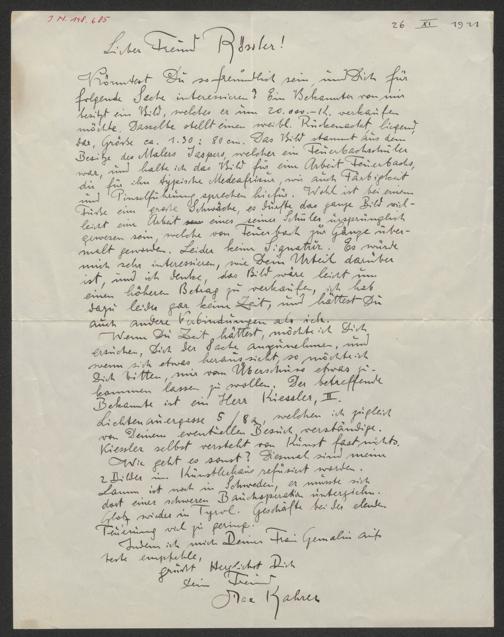 J.N. 148.685
26 XI 1921
Lieber Freund Rössler!
Könntest Du so freundlich sein, und Dich für
folgende Sache interessieren? Ein Bekannter von mir
besitzt ein Bild, welches er um 20.000.- K. verkaufen
möchte. Dasselbe stellt einen weibl. Rückenackt liegend
dar, Größe ca. 1.30 : 80 cm. Das Bild stammt aus dem
Besitze des Malers Jaspers, welcher ein Feuerbachschüler
war, und halte ich das Bild für eine Arbeit Feuerbachs,
die für ihn typische Medeafrisur, wie auch Farbigkeit
und Pinselführung sprechen hiefür. Wohl ist bei einem
Fuße eine große Schwäche, es dürfte das ganze Bild viel-
leicht eine Arbeit eines seiner Schüler ursprünglich
gewesen sein, welche von Feuerbach zu Gänze über-
malt geworden. Leider keine Signatur. Es würde
mich sehr interessieren, wie Dein Urteil darüber
ist, und ich denke, das Bild wäre leicht um
einen höheren Betrag zu verkaufen, ich hab
dazu leider gar keine Zeit, und hättest Du
auch andere Verbindungen als ich.
Wenn Du Zeit hättest, möchte ich Dich
ersuchen, Dich der Sache anzunehmen, und
wenn sich etwas heraussieht, so möchte ich
Dich bitten, mir vom Überschuss etwas zu-
kommen lassen zu wollen. Der betreffende
Bekannte ist ein Herr Kiessler, II.
Lichtenauergasse 5 / 8a, welchen ich zugleich
von Deinem eventuellen Besuch verständige.
Kiessler selbst versteht von Kunst fast nichts.
Wie geht es sonst? Diesmal sind meine
2 Bilder im Künstlerhaus refüsiert worden.
ist noch in Schweden, er musste sich
dort einer schweren Bauchoperation unterziehen.
wieder in Tyrol. Geschäfte bei der elenden
Teuerung viel zu gering.
Indem ich mich Deiner Frau Gemalin aufs
beste empfehle,
grüßt Herzlichst Dich
dein Freund
Max Kahrer